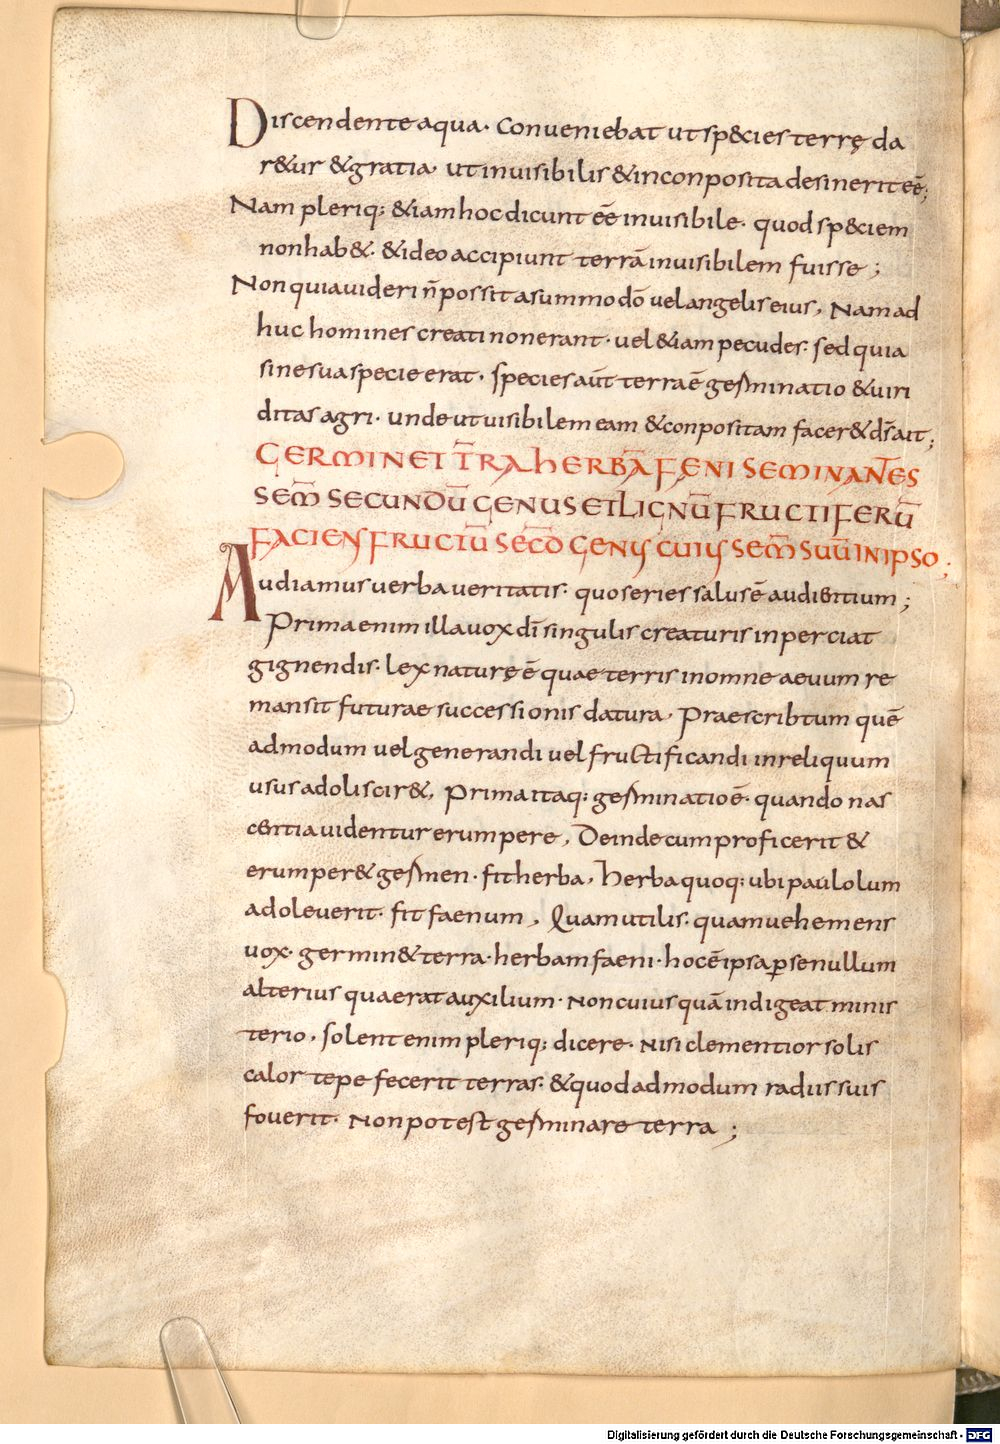 Discendente aqua· Conueniebat ut sp&cies terrę da
r&ur &gratia· ut inuisibilis &inconposita desinerit eē;
Nam pleriq; &iam hoc dicunt eē inuisibile· quod sp&ciem
non hab&· &ideo accipiunt terrā inuisibilem fuisse;
Non quia uideri n̄ possit a summo dō uel angelis eius, Nam ad
huc homines creati non erant· uel &iam pecudes· sed quia
sine sua specie erat· species aūt terrae ē germinatio &uiri
ditas agri· unde ut uisibilem eam &conpositam facer& d̄s ait;
GERMINET T̄RA HERBĀ FENI SEMINANTES
SEM̄ SECUNDŪ GENUS ET LIGNŪ FRUCTIFERŪ
FACIENS FRUCTŪ SECD̄ GENUS CUIUS SEM̄ SUŪ IN IPSO;
Audiamus uerba ueritatis· quo series salus ē audientium;
Prima enim illa uox dī singulis creaturis inperciat
gignendis· lex naturę ē quae terris in omne aeuum re
mansit futurae successionis datura, Praescribtum quē
admodum uel generandi uel fructificandi in reliquum
usus adoliscir&, Prima itaq; germinatio ē· quando nas
centia uidentur erumpere, Deinde cum proficerit &
erumper& germen· fit herba, herba quoq; ubi paululum
adoleuerit· fit faenum, Quam utilis· quam uehemens
uox· germin& terra· herbam faeni· hoc ē ipsa ꝑ se nullum
alterius quaerat auxilium· Non cuiusquā indigeat minis
terio, solent enim pleriq; dicere· Nisi clementior solis
calor tepefecerit terras· &quodadmodum radiis suis
fouerit· Non potest germinare terra;
Digitalisierung gefördert durch die Deutsche Forschungsgemeinschaft - DFG